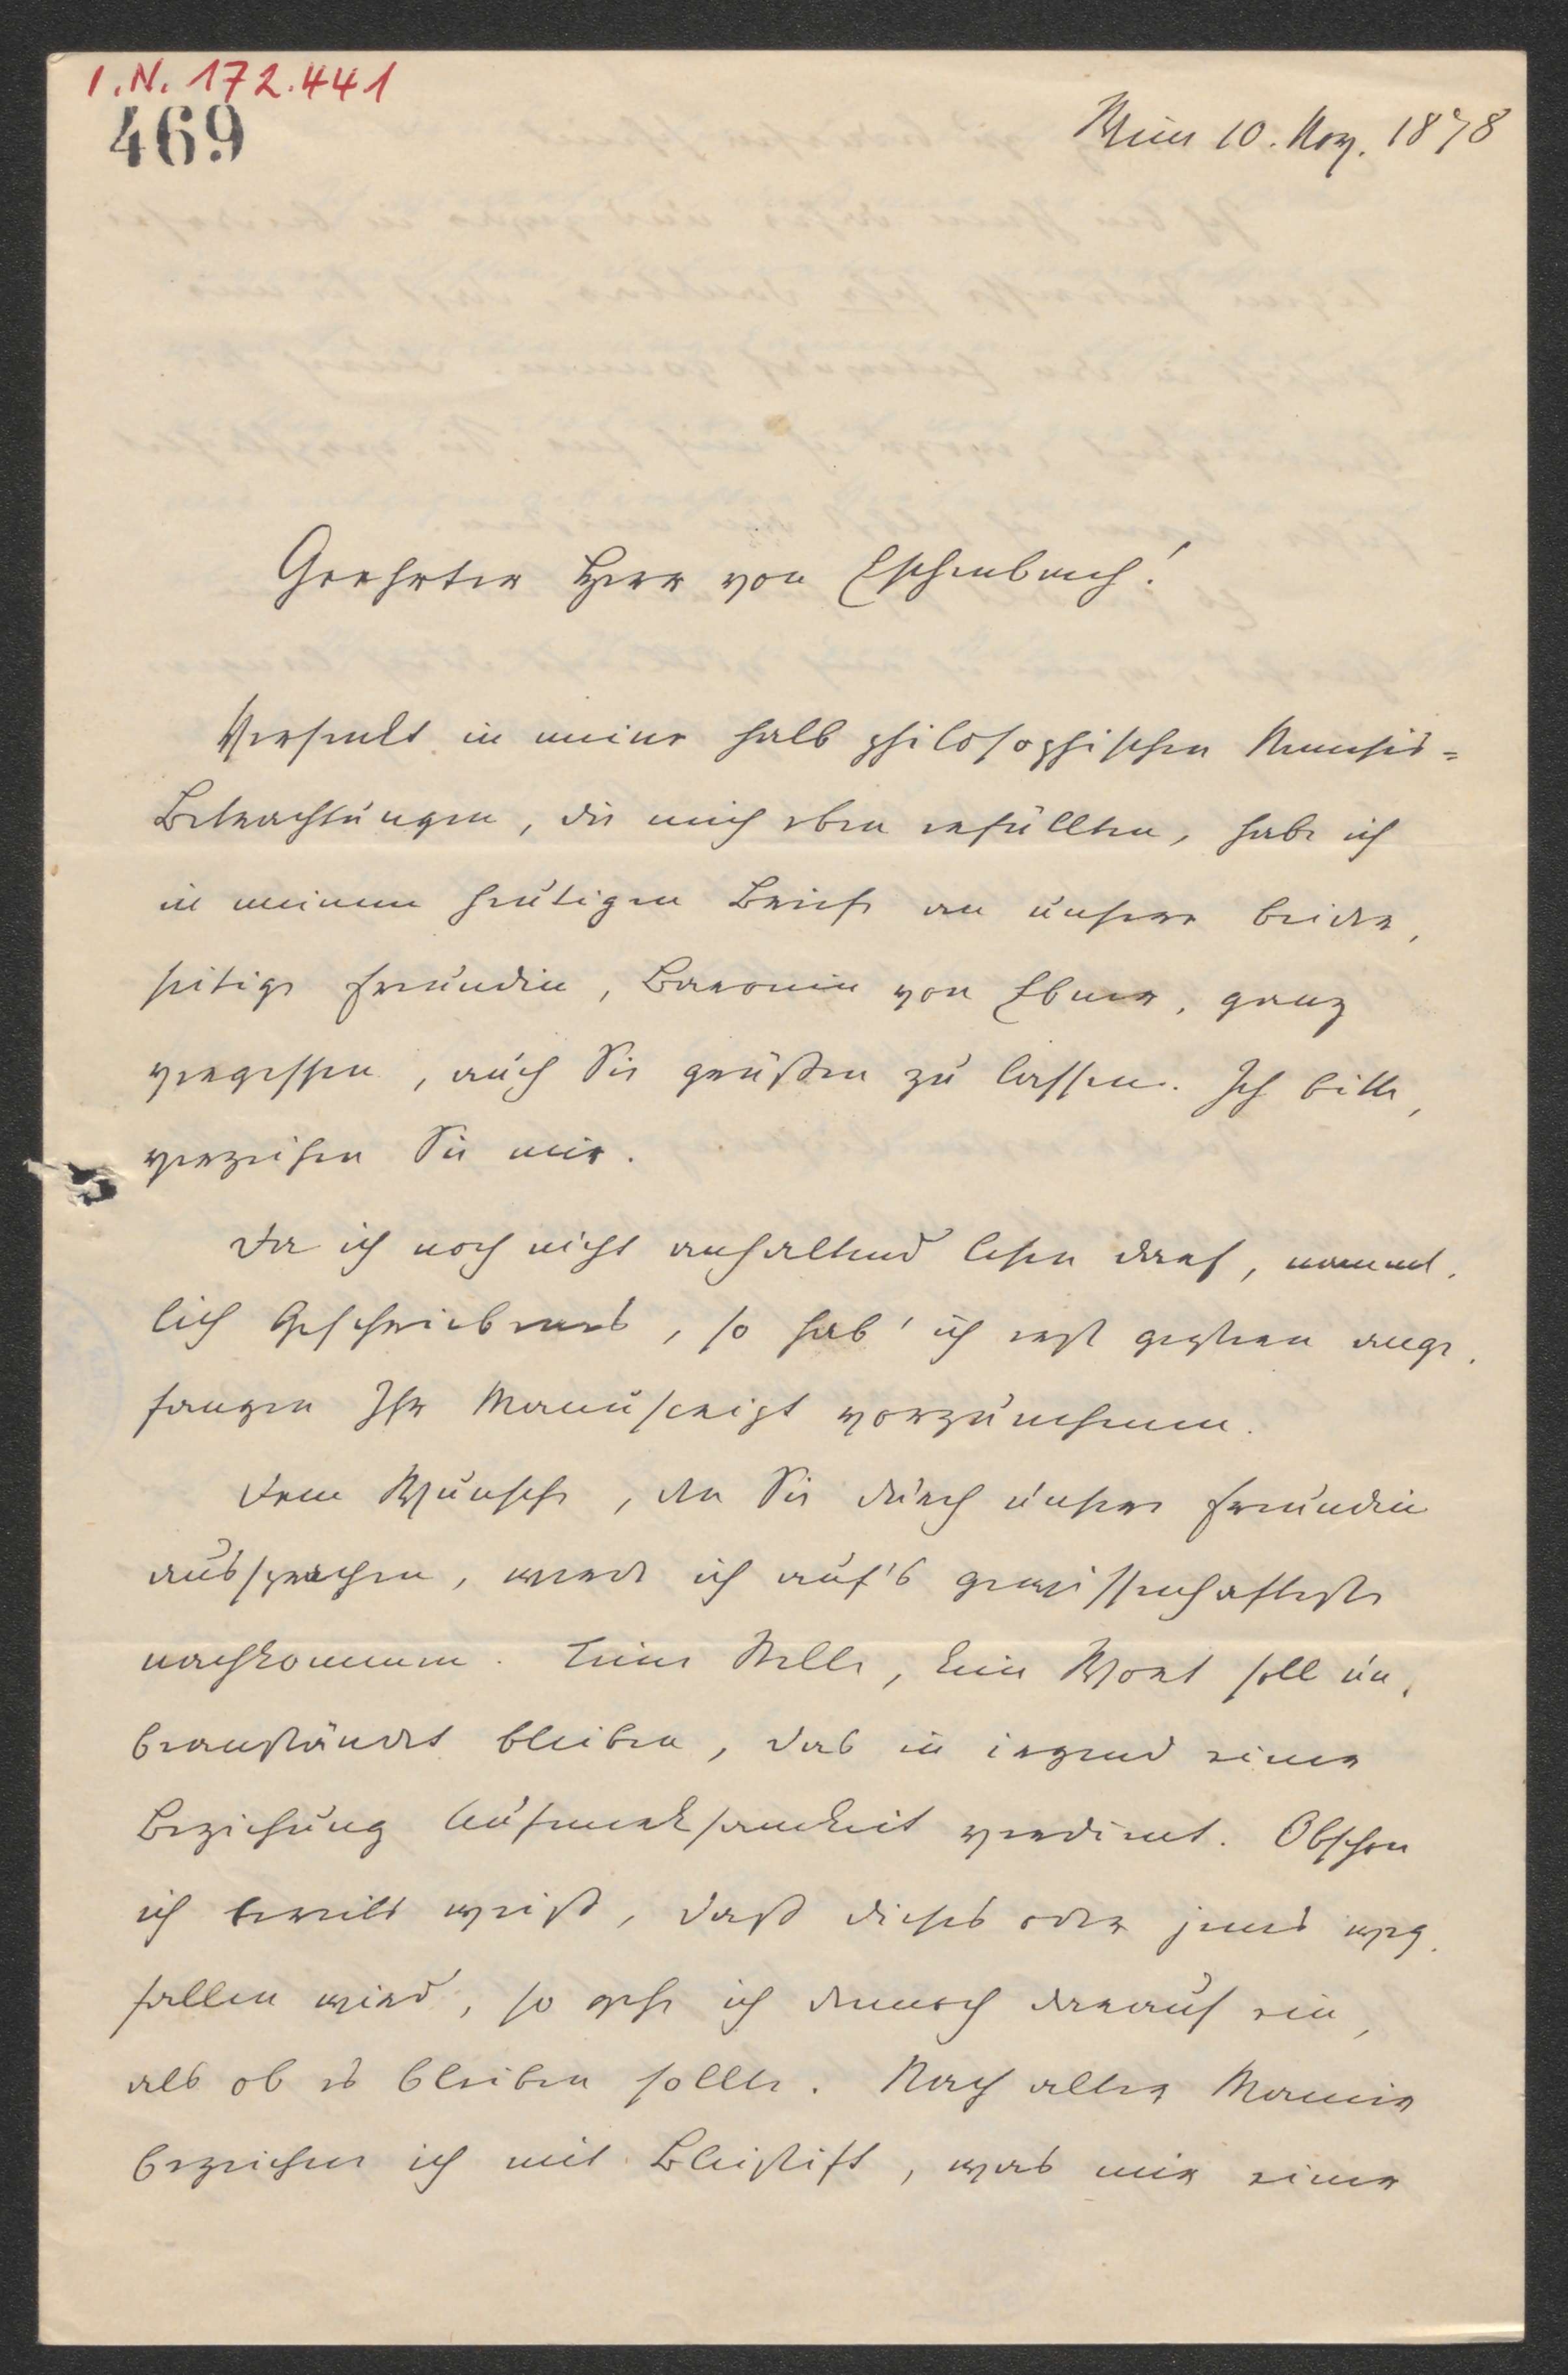 I.N. 172.441
469
Wien 10. Nov. 1878
Geehrter Herr von Eschenbach!
Versenkt in meine halb philosophischen Nemesis=
Betrachtungen, die mich eben erfüllten, habe ich
in meinem heutigen Briefe an unsere beider,
seitige Freundin, Baronin von Ebner, ganz
vergessen, auch Sie grüßen zu lassen. Ich bitte,
verzeihen Sie mir.
Da ich noch nicht anhaltend lesen darf, nament,
lich Geschriebenes, so hab' ich erst gestern ange,
fangen Ihr Manuscript vorzunehmen.
Dem Wunsche, den Sie durch unsere Freundin
aussprachen, werde ich auf's gewissenhafteste
nachkommen. Keine Stelle, kein Wort soll un,
beanständet bleiben, das in irgend einer
Beziehung Aufmerksamkeit verdient. Obschon
ich bereits weiß, daß dieses oder jenes weg,
fallen wird, so gehe ich dennoch darauf ein,
als ob es bleiben sollte. Nach alter Manier
bezeichne ich mit Bleistift, was mir einer